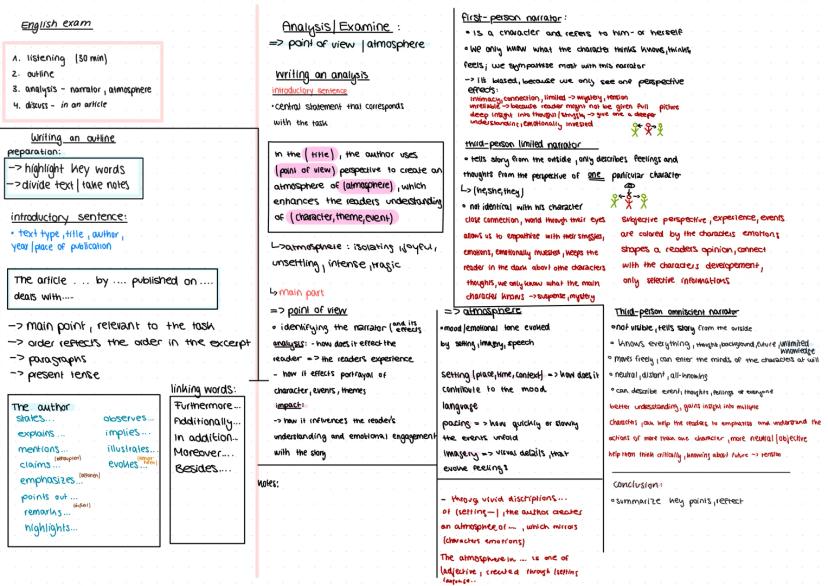 English exam
1. listening (30 min)
2. outline
3. analysis - narrator, atmosphere
4. discuss - in an article
Writing an outline
preparation:
-> highlight key words
-> divide text | take notes
introductory sentence:
• text type, title, author,
year/place of publication
The article ... by .... published on ....
deals with....
-> main point, relevant to the task
-> order reflects the order in the excerpt
-> paragraphs
-> present tense
The author
states...
explains...
mentions...
claims...
emphasizes...
points out...
remarks...
highlights...
observes...
implies...
illustrates...
evokes...
linking words:
Furthermore...
Additionally...
In addition...
Moreover....
Besides....
Analysis/Examine :
=> point of view | atmosphere
Writing an analysis
introductory sentence
• central statement that corresponds
with the task
In the (title), the author uses
(point of view) perspective to create an
atmosphere of (atmosphere), which
enhances the readers understanding
of (character, theme, event)
↳ atmosphere : isolating, joyful,
unsettling, intense, tragic
↳ main part
=> point of view
• identifying the narrator (and its effects
analysis: - how does it effect the
reader => the readers experience
- how it effects portrayal of
character, events, themes
impact:
-> how it influences the reader's
understanding and emotional engagement
with the story
Notes:
=> atmosphere
• mood/emotional tone evoked
by setting, imagery, speech
setting (place, time, context) => how does it
contribute to the mood
language
pacing => how quickly or slowly
the events unfold
Imagery => visual details, that
evoke feelings?
- throug vivid discriptions...
of (setting—), the author creates
an atmosphee of ..., which mirrors
(characters emotions)
The atmosphere in ... is one of
(adjective, created through (setting
first-person narrator:
• is a character and refers to him- or herself
• we only know what the character thinks knows, thinks,
feels; we sympathise most with this narrator
-> its biased, because we only see one perspective
effects:
intimacy, connection, limited -> mystery, tension
unreliable -> because reader might not be given full picture
deep insight into thought/struggles -> give one a deeper
understanding; emotionally invested
third-person limited narrator
• tells story from the outside, only describes feelings and
thoughts from the perspective of one particular character
↳ (he, she, they)
• not identical with his character
close connection, world through their eyes
allows us to empathise with their stresses,
emotions, emotionally invested, keeps the
reader in the dark about othe characters
thoughts, we only know what the main
character knows -> suspense, mystery
Subjective perspective, experience, events
are colored by the characters emotions
shapes a readers opinion, connect
with the characters developement,
only selective informations
Third-person omniscient narrator
• not visible, tells story from the outside
• knows everything, thought, background, future, unlimited knowledge
• moves freely, can enter the minds of the characters at will
• neutral, distant, all-knowing
• can describe event, thoughts, feelings of everyone
better understanding, gains insight into multiple
characters, can help the readers to emphasise and understand the
actions of more than one character, more neutral/objective
help them think critically, knowing about future -> tension
Conclusion:
• summarize key points, reflect